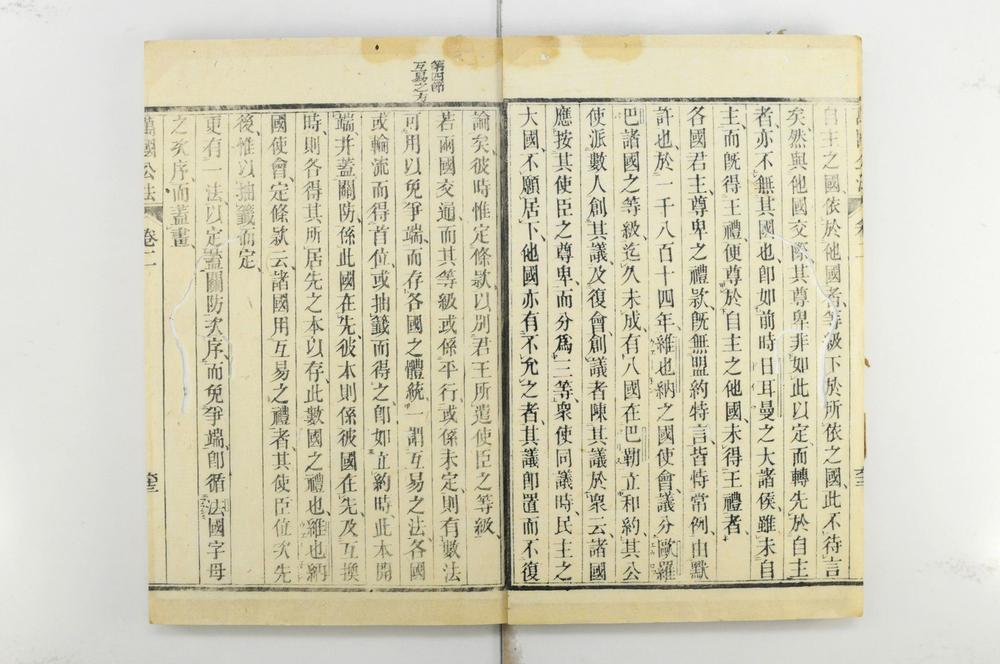 自主之國、依於他國者、等級下於所依之國、此不待言
矣、然與他國交際、其尊卑非如此以定、而轉先於自主
者、亦不無其國也、卽如前時日耳曼之大諸侯、雖未自
主、而旣得王禮、便尊於自主之他國、未得王禮者、
各國君主尊卑之禮款、旣無盟約特言、皆恃常例、由默
許也、於一千八百十四年、維也納之國使會、議分歐羅
巴諸國之等級、迄久未成、有八國在巴勒立和約、其公
使派數人創其議、及復會、創議者陳其議於衆云、諸國
應按其使臣之尊卑、而分爲三等、衆使同議時、民主之
大國、不願居下、他國亦有不允之者、其議卽置而不復
論矣、彼時惟定條款、以別君王所遣使臣之等級、
第四節
互易之方
若兩國交通、而其等級或係平行、或係未定、則有數法
可用、以免爭端、而存各國之體統、一謂互易之法、各國
或輪流而得首位、或抽籤而得之、卽如立約時、此本開
端、幷蓋關防、係此國在先、彼本則係彼國在先、及互換
時、則各得其所居先之本以存、此數國之禮也、維也納
國使會、定條款云、諸國用互易之禮者、其使臣位次先
後、惟以抽籤而定、
更有一法、以定蓋關防次序、而免爭端、卽循法國字母
之次序、而蓋畫
萬國公法
卷二